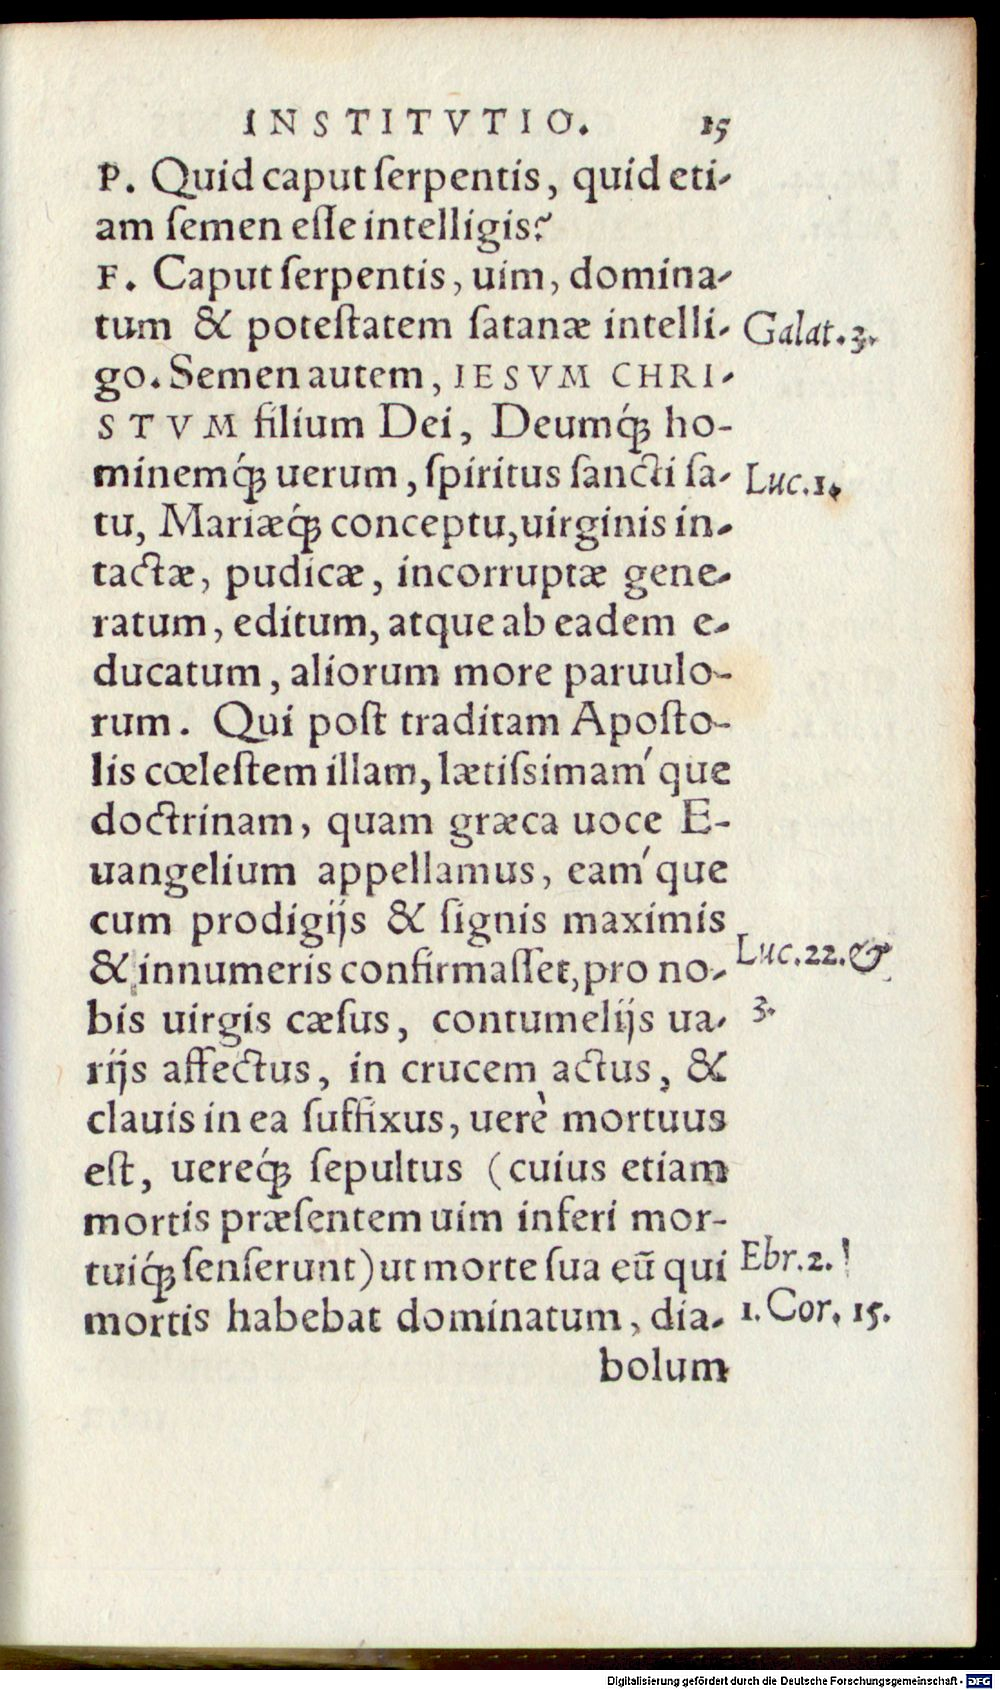 INSTITVTIO. 15
P. Quid caput ſerpentis, quid eti-
am ſemen eſſe intelligis?
F. Caput ſerpentis, uim, domina-
tum & poteſtatem ſatanæ intelli-
Galat.3.
go. Semen autem, IESVM CHRI-
STVM filium Dei, Deumq́; ho-
minemq́; uerum, ſpiritus ſancti ſa-
Luc.1.
tu, Mariæq́; conceptu, uirginis in-
tactæ, pudicæ, incorruptæ gene-
ratum, editum, atque ab eadem e-
ducatum, aliorum more paruulo-
rum. Qui poſt traditam Apoſto-
lis cœleſtem illam, lætiſsimam´que
doctrinam, quam græca uoce E-
uangelium appellamus, eam´que
cum prodigijs & ſignis maximis
& innumeris confirmaſſet, pro no-
Luc.22.&
bis uirgis cæſus, contumelijs ua-
3.
rijs affectus, in crucem actus, &
clauis in ea ſuffixus, uerè mortuus
eſt, uereq́; ſepultus (cuius etiam
mortis præſentem uim inferi mor-
tuiq́; ſenſerunt) ut morte ſua eũ qui
Ebr.2.!
mortis habebat dominatum, dia-
1. Cor. 15.
bolum
Digitalisierung gefördert durch die Deutsche Forschungsgemeinschaft - DFG